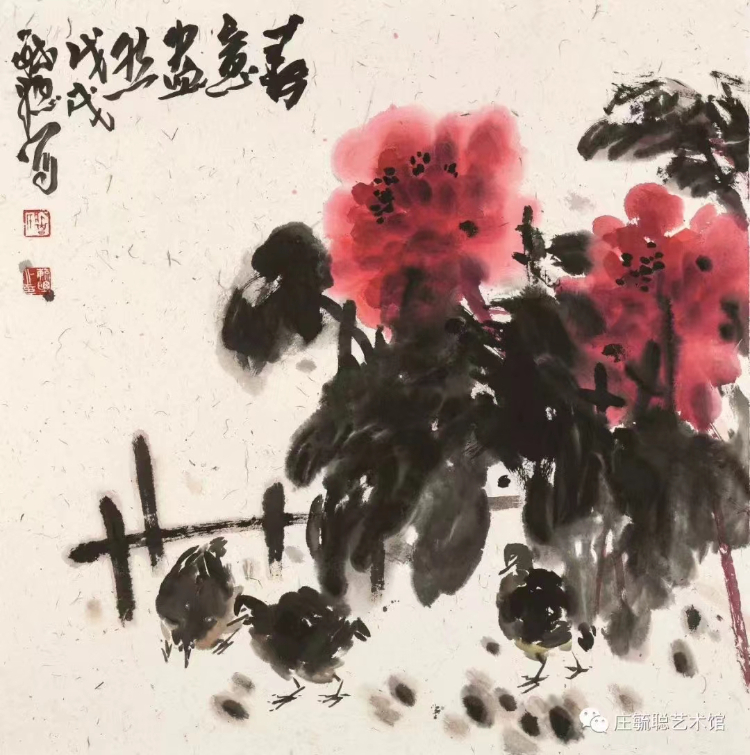 春意盎然
戊戌
毓聪写
庄毓聪艺术馆